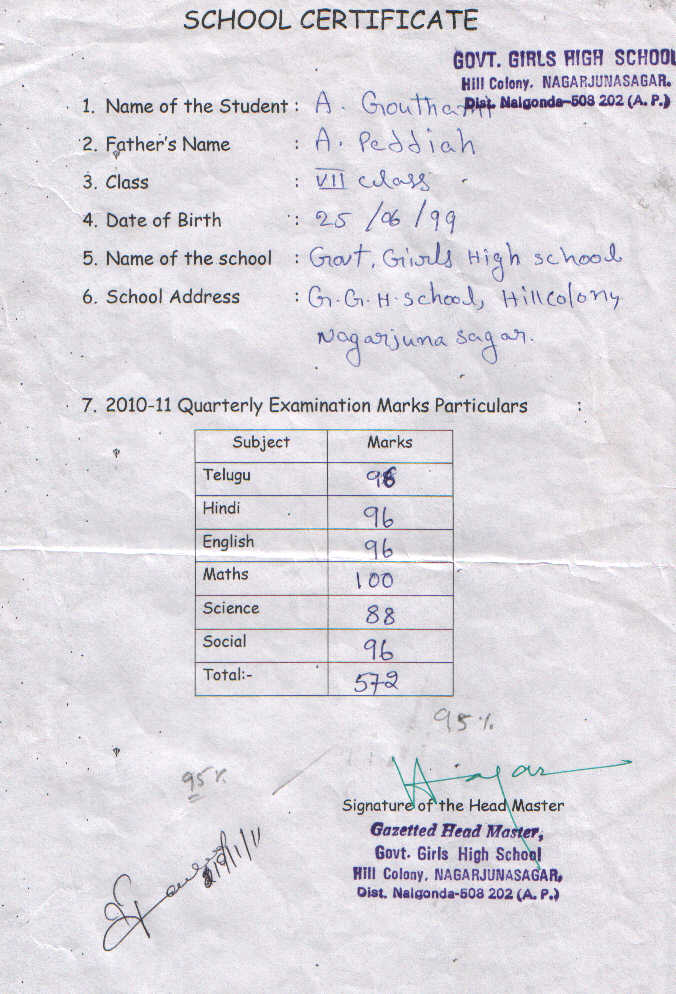 SCHOOL CERTIFICATE
GOVT. GIRLS HIGH SCHOOL
Hill Colony. NAGARJUNASAGAR.
Dist. Nalgonda-508 202 (A. P.)
1. Name of the Student : A. Gouthami
2. Father's Name : A. Peddiah
3. Class : VII class
4. Date of Birth : 25/06/99
5. Name of the school : Govt. Girls High school
6. School Address : G.G.H.school, Hillcolony
Nagarjuna sagar.
7. 2010-11 Quarterly Examination Marks Particulars :
Subject Marks
Telugu 96
Hindi 96
English 96
Maths 100
Science 88
Social 96
Total:- 572
95%
95%
Signature of the Head Master
Gazetted Head Master,
Govt. Girls High School
Hill Colony, NAGARJUNASAGAR,
Dist. Nalgonda-508 202 (A. P.)